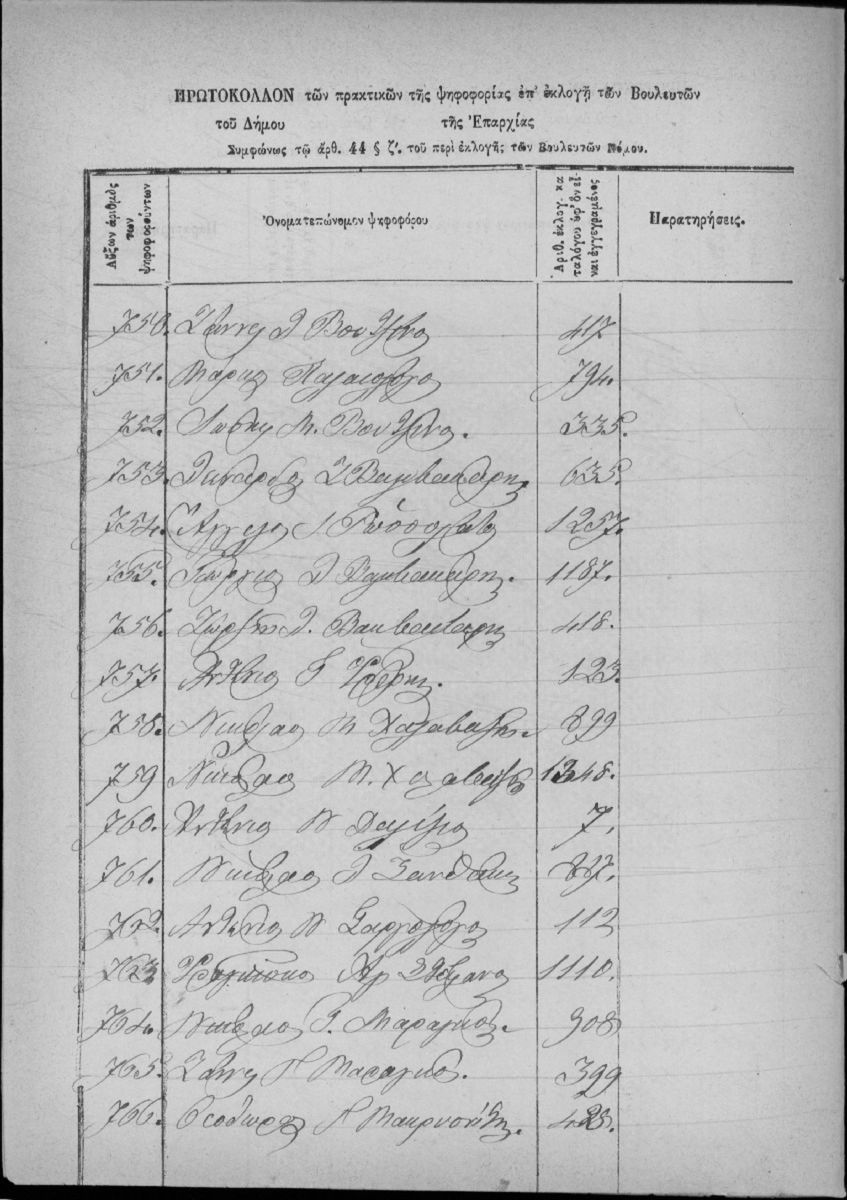 ΠΡΩΤΟΚΟΛΛΟΝ τῶν πρακτικῶν τῆς ψηφοφορίας ἐπ' ἐκλογῇ τῶν Βουλευτῶν
τοῦ Δήμου τῆς Ἐπαρχίας
Συμφώνως τῷ ἄρθ. 44 § ζ'. τοῦ περὶ ἐκλογῆς τῶν Βουλευτῶν Νόμου.
Αὔξων ἀριθμὸς
των
ψηφοφορούντων
Ὀνοματεπώνυμον ψηφοφόρου
Ἀριθ. ἐκλογ. κα
ταλόγου ὑφ' ὃν εἶ
ναι ἐγγεγραμένος
Παρατηρήσεις.
750. Ζάννες 417
751. Μάρκος Παλαιολόγος 794.
752. Ιωσήφ Μ. 335.
753. Λεονάρδος Ι Βαμβακάρης 635.
754. Ἄγγελος 1257.
755. Γεώργιος Δ Βαμβακάρης. 1187.
756. Ζώρζης Δ. Βαμβακάρης 418.
757. Αντώνιος Γ 123.
758. Νικόλαος Μ Χαλαβαζῆς. 899
759 Νικόλαος Μ. Χαλαβαζῆς 1348.
760. Αντώνιος Ν Δαλέζιος 7.
761. Νικόλαος Δ Ξανθάκης 887.
762. Αντώνιος Ν Σαργολόγος 112
763 Φραγκίσκος 1110.
764. Νικόλαος Γ. Μαραγκός. 908
765. Ζάννες Μαραγκός. 399
766. Θεόδωρος 428.